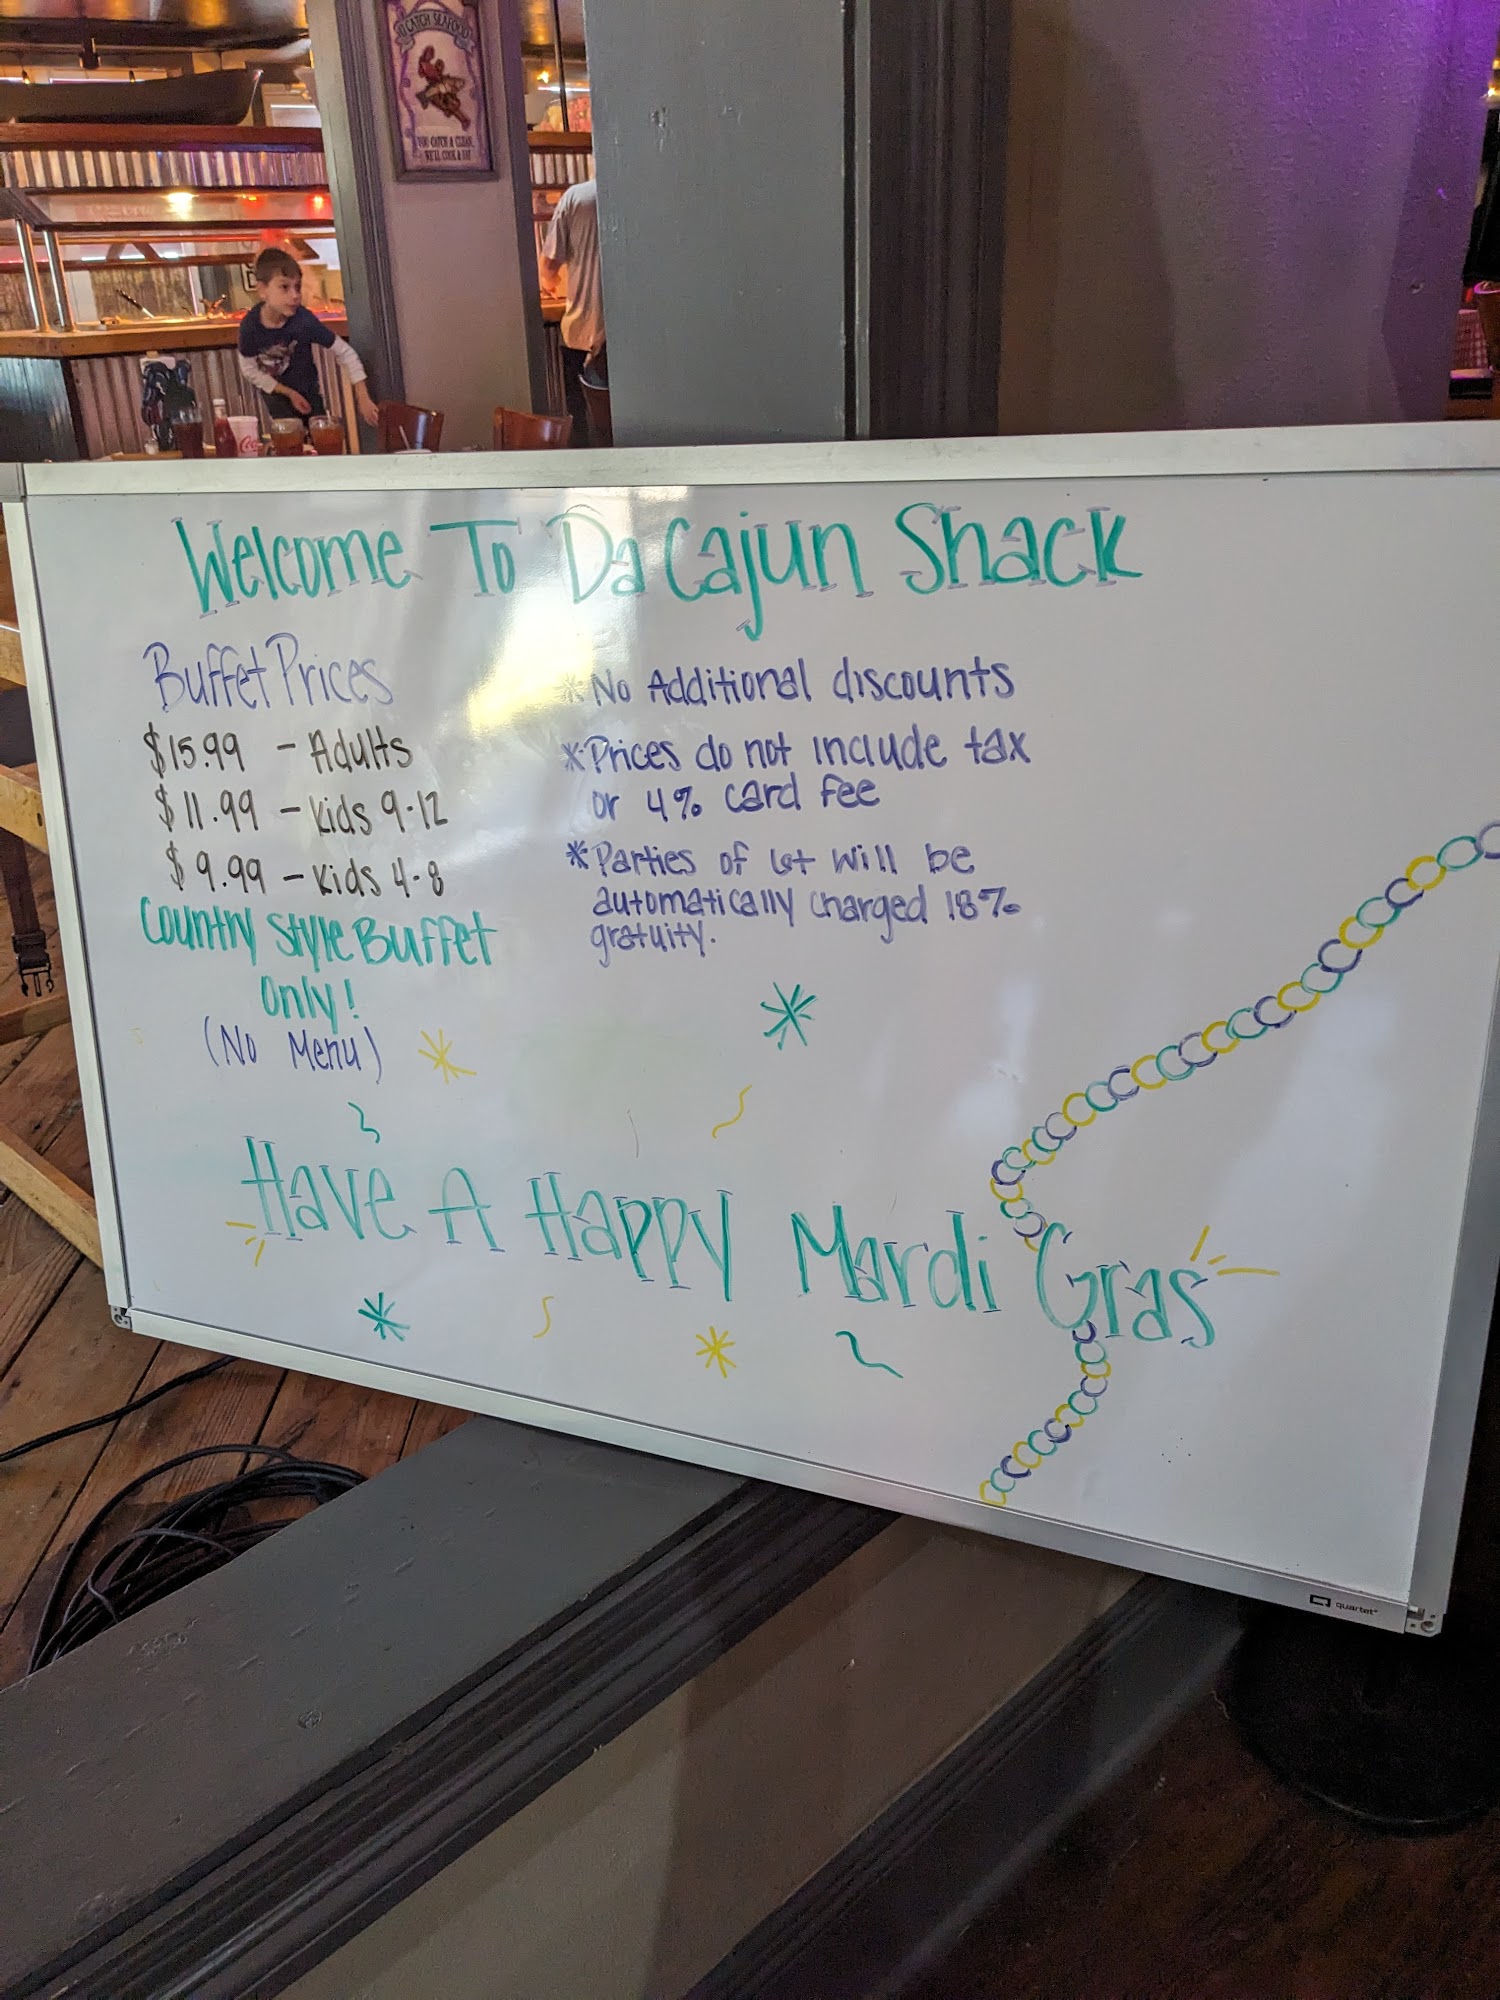 CATCH SEAFOOD
YOU CATCH & CLEAN,
WE'LL COOK & EAT
Welcome To Da Cajun Shack
Buffet Prices
$15.99 - Adults
$11.99 - Kids 9-12
$9.99 - Kids 4-8
Country Style Buffet
Only!
(No Menu)
* No Additional discounts
* Prices do not include tax
or 4% card fee
* Parties of 6+ will be
automatically charged 18%
gratuity.
Have A Happy Mardi Gras
quartet